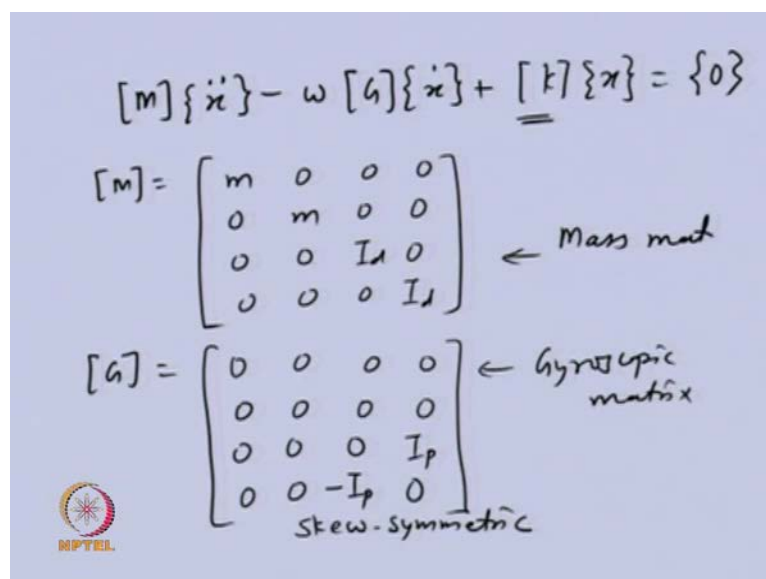 [m]{ẍ} - ω [G]{ẋ} + [k]{x} = {0}
[m] = [ m 0 0 0
0 m 0 0
0 0 I_d 0
0 0 0 I_d ] ← Mass mat
[G] = [ 0 0 0 0
0 0 0 0
0 0 0 I_p
0 0 -I_p 0 ] ← Gyroscopic
matrix
skew-symmetric
NPTEL